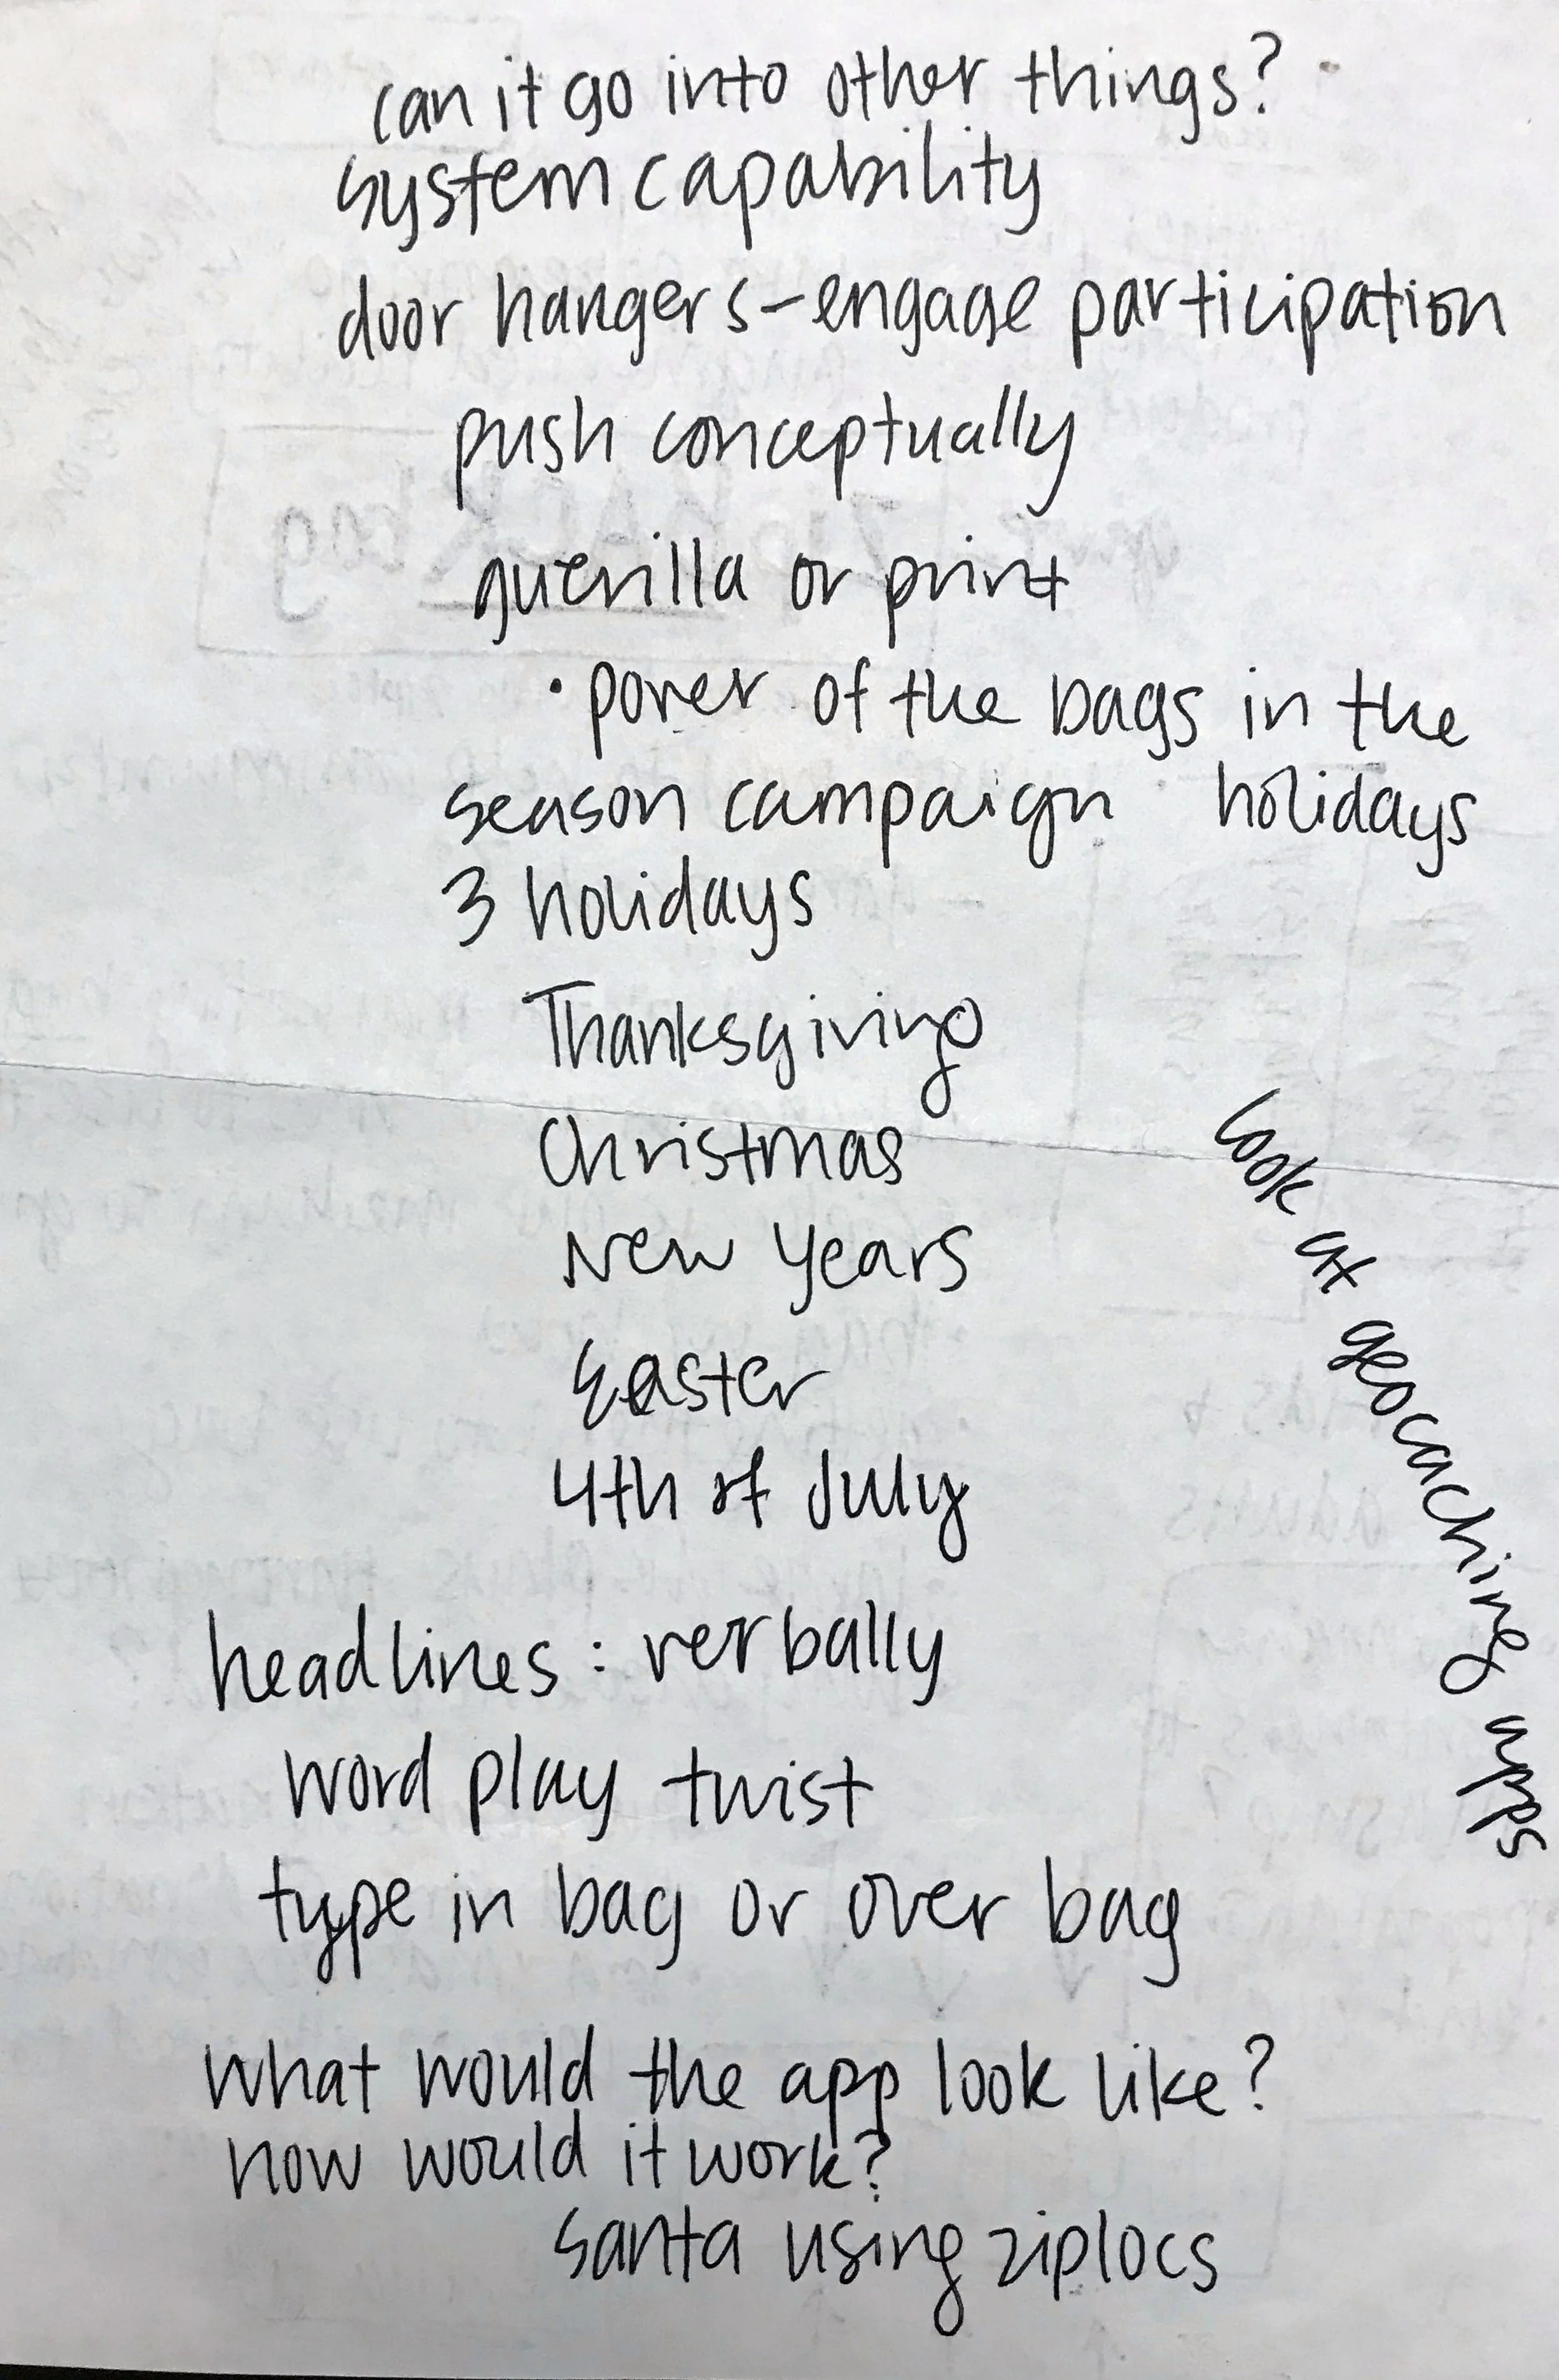 can it go into other things?
system capability
door hangers-engage participation
push conceptually
guerilla or print
• power of the bags in the
season campaign holidays
3 holidays
Thanksgiving
Christmas
New Years
Easter
4th of July
look at geocaching apps
headlines: verbally
word play twist
type in bag or over bag
what would the app look like?
how would it work?
santa using ziplocs